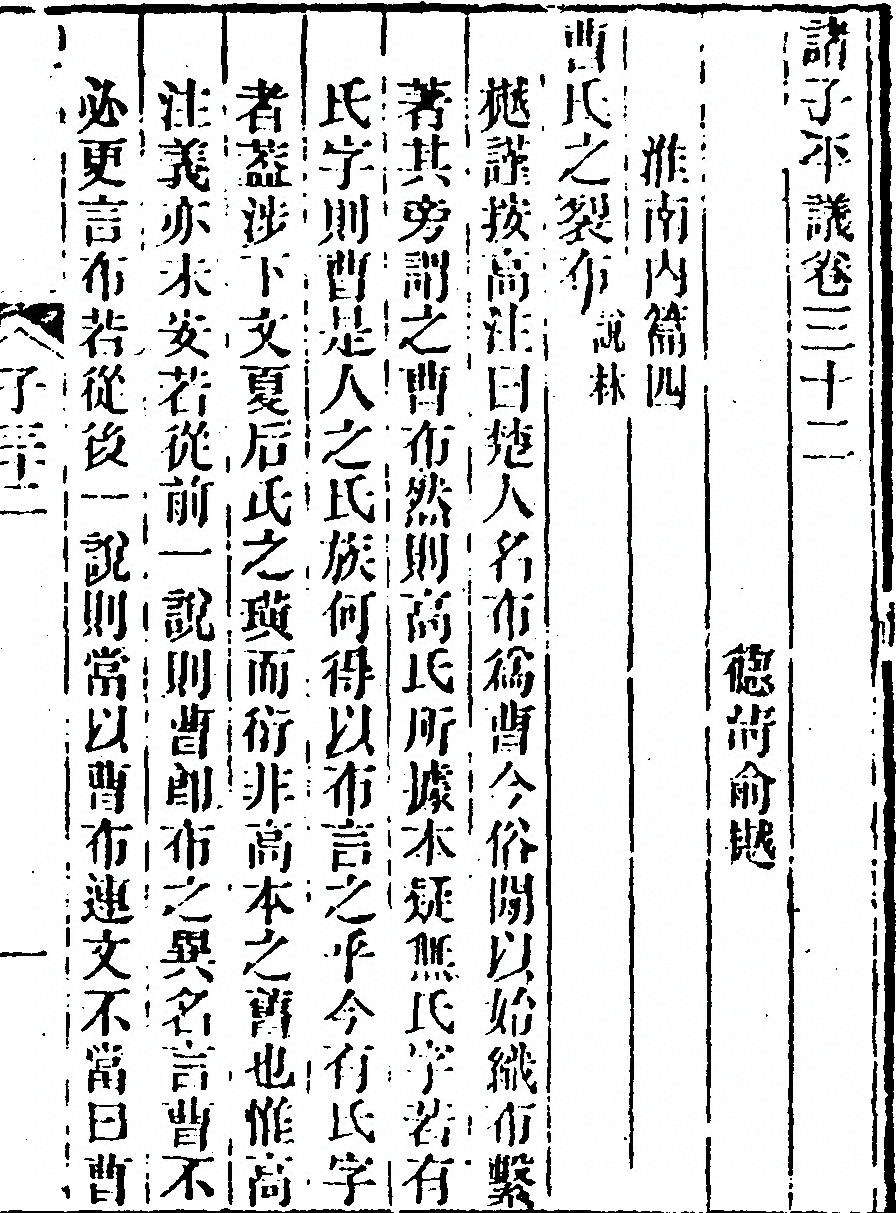 諸子平議卷三十二
德淸俞樾
淮南內篇四
曹氏之裂布說林
樾謹按高注曰楚人名布爲曹今俗閒以始織布繫
著其旁謂之曹布然則高氏所據本疑無氏字若有
氏字則曹是人之氏族何得以布言之乎今有氏字
者葢涉下文夏后氏之璜而衍非高本之舊也惟高
注義亦未安若從前一說則曹卽布之異名言曹不
必更言布若從後一說則當以曹布連文不當曰曹
子三十二
一